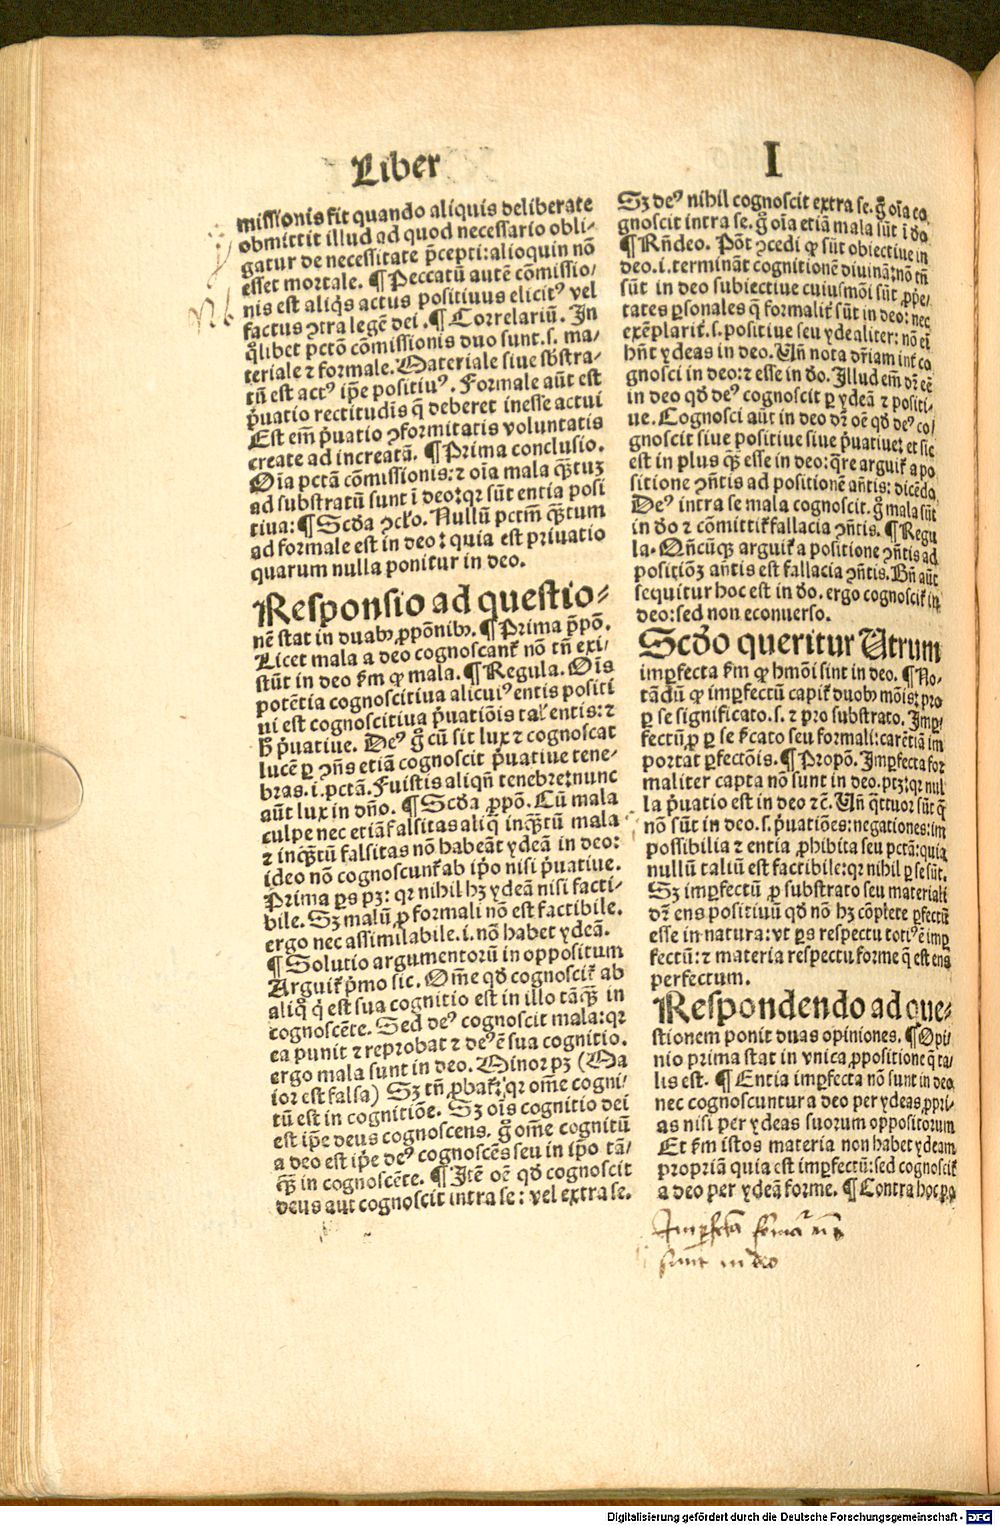 Liber I
missionis fit quando aliquis deliberate
obmittit illud ad quod necessario obli-
gatur de necessitate p̄cepti: alioquin nō
esset mortale. ¶ Peccatū autē cōmissio/
nis est aliq̄s actus positiuus elicitꝰ vel
factus ↄtra legē dei. ¶ Correlariū. In
q̄libet pctō cōmissionis duo sunt .s. ma-
teriale ⁊ formale. Materiale siue sb̄stra-
tū est actꝰ ip̄e positiuꝰ. Formale aūt est
p̄uatio rectitudīs q̄ deberet inesse actui
Est em̄ p̄uatio ↄformitatis voluntatis
create ad increatā. ¶ Prima conclusio.
Oīa pctā cōmissionis: ⁊ oīa mala q̄ꝫtuꝫ
ad substratū sunt ī deo: qꝛ sūt entia posi
tiua: ¶ Scďa ↄclo. Nullū pctm̄ q̄ꝫtum
ad formale est in deo: quia est priuatio
quarum nulla ponitur in deo.
Responsio ad questio-
nē stat in duabꝰ ꝓpōnibꝰ. ¶ Prima ꝓpo.
Licet mala a deo cognoscanť nō tn̄ exi-
stūt in deo ẜm ꝙ mala. ¶ Regula. Oīs
potētia cognoscitiua alicuiꝰ entis positi
ui est cognoscitiua p̄uatiōis talꝭ entis: ⁊
h̄ p̄uatiue. Deꝰ g̊ cū sit lux ⁊ cognoscat
lucē ꝑ ↄn̄s etiā cognoscit p̄uatiue tene-
bras .i. pctā. Fuistis aliqn̄ tenebre: nunc
aūt lux in dn̄o. ¶ Scďa ꝓpō. Cū mala
culpe nec etiā falsitas aliq̄ inq̄ꝫtū mala
⁊ inq̄ꝫtū falsitas nō habeāt ydeā in deo:
ideo nō cognoscunť ab ip̄o nisi p̄uatiue.
Prima ꝑs pꝫ: qꝛ nihil hꝫ ydeā nisi facti-
bile. Sꝫ malū ꝓ formali nō est factibile.
ergo nec assimilabile .i. nō habet ydeā.
¶ Solutio argumentorū in oppositum
Arguiť p̄mo sic. Om̄e qd̄ cognosciť ab
aliq̊ q̇ est sua cognitio est in illo tāq̄ꝫ in
cognoscēte. Sed deꝰ cognoscit mala: qꝛ
ea punit ⁊ reprobat ⁊ deꝰ ē sua cognitio.
ergo mala sunt in deo. Minor pꝫ (Ma
ior est falsa) Sꝫ tn̄ ꝓbať: qꝛ om̄e cogni/
tū est in cognitiōe. Sꝫ oīs cognitio dei
est ip̄e deus cognoscens. g̊ om̄e cognitū
a deo est ip̄e deꝰ cognoscēs seu in ip̄o tā-
q̄ꝫ in cognoscēte. ¶ Itē oē qd̄ cognoscit
deus aut cognoscit intra se: vel extra se.
Sꝫ deꝰ nihil cognoscit extra se. g̊ oīa co
gnoscit intra se. g̊ oīa etiā mala sūt ī do
¶ Rn̄deo. Pōt ↄcedi ꝙ sūt obiectiue in
deo .i. terminant cognitionē diuinā: nō tn̄
sūt in deo subiectiue cuiusmōi sūt ꝓpe/
tates ꝑsonales q̄ formaliť sūt in deo: nec
exēplariť .s. positiue seu ydealiter: nō em̄
hn̄t ydeas in deo. Un̄ nota dr̄iam int̄ co
gnosci in deo: ⁊ esse in do. Illud em̄ dꝛ eē
in deo qd̄ deꝰ cognoscit ꝑ ydeā ⁊ positi-
ue. Cognosci aūt in deo dꝛ oē qd̄ deꝰ co/
gnoscit siue positiue siue p̄uatiue: et sic
est in plus q̄ꝫ esse in deo: q̄re arguiť a po
sitione ↄn̄tis ad positionē an̄tis: dicēdo
Deꝰ intra se mala cognoscit. g̊ mala sūt
in do ⁊ cōmittiť fallacia ↄn̄tis. ¶ Regu
la. Qn̄cūq̄ꝫ arguiť a positione ↄn̄tis ad
positiōꝫ an̄tis est fallacia ↄn̄tis. Bn̄ aūt
sequitur hoc est in do. ergo cognosciť in
deo: sed non econuerso.
Scďo queritur Utrum
imꝑfecta ẜm ꝙ hmōi sint in deo. ¶ No-
tādū ꝙ imꝑfectū capiť duobꝰ mōis: pro
ꝑ se significato .s. ⁊ pro substrato. Imꝑ/
fectū ꝓ ꝑ se ẜcato seu formali: carētiā im
portat ꝑfectōis. ¶ Propō. Imꝑfecta for
maliter capta nō sunt in deo. ptꝫ: qꝛ nul
la p̄uatio est in deo ⁊c̄. Un̄ q̄ttuor sūt q̄
nō sūt in deo .s. p̄uatiōes: negationes: im
possibilia ⁊ entia ꝓhibita seu pctā: quia
nullū taliū est factibile: qꝛ nihil ꝑ se sūt.
Sꝫ imꝑfectū ꝓ substrato seu materiali
dꝛ ens positiuū qd̄ nō hꝫ cōplete ꝑfectū
esse in natura: vt ꝑs respectu totiꝰ ē imꝑ
fectū: ⁊ materia respectu forme q̄ est ens
perfectum.
Respondendo ad que-
stionem ponit duas opiniones. ¶ Opi
nio prima stat in vnica ꝓpositione q̄ ta/
lis est. ¶ Entia imꝑfecta nō sunt in deo
nec cognoscuntur a deo per ydeas ꝓpri-
as nisi per ydeas suorum oppositorum
Et ẜm istos materia non habet ydeam
propriā quia est imꝑfectū: sed cognosciť
a deo per ydeā forme. ¶ Contra hoc po
Imperfecta formar nō
sunt in deo
Nb
Digitalisierung gefördert durch die Deutsche Forschungsgemeinschaft - DFG